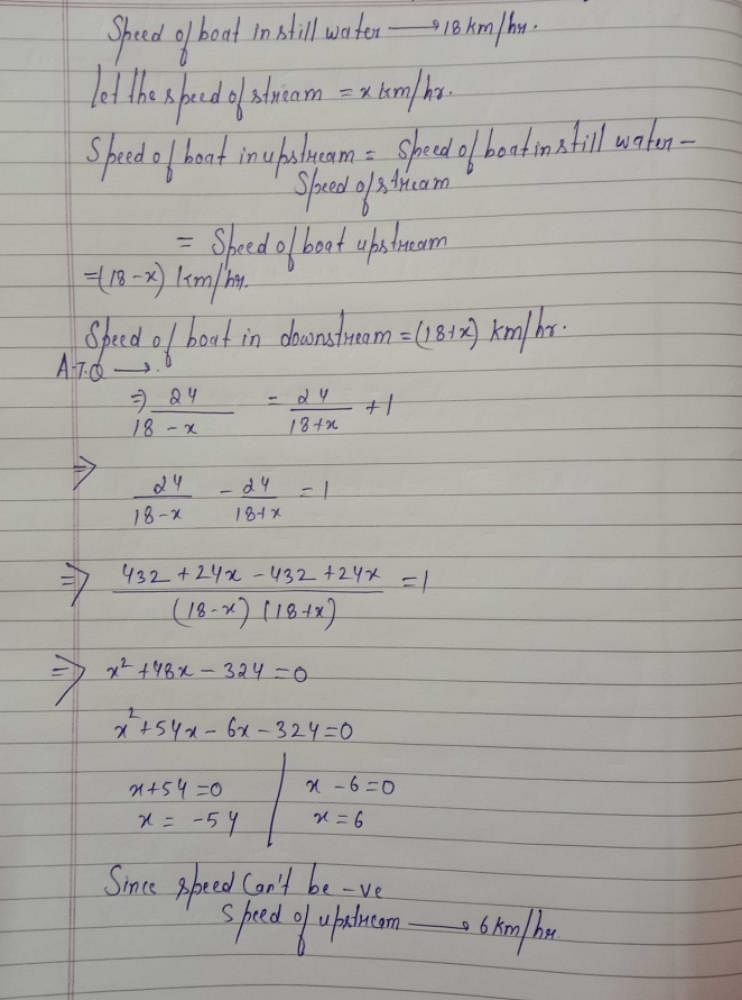 Speed of boat in still water → 18 km/hr.
let the speed of stream = x km/hr.
Speed of boat in upstream = Speed of boat in still water –
Speed of stream
= Speed of boat upstream
=(18 – x) km/hr.
Speed of boat in downstream = (18+x) km/hr.
A.T.Q → .
⇒ 24/(18 – x) = 24/(18+x) + 1
⇒
24/(18–x) – 24/(18+x) = 1
⇒ (432 + 24x – 432 + 24x)/((18–x) (18+x)) = 1
⇒ x² + 48x – 324 = 0
x² + 54x – 6x – 324 = 0
x + 54 = 0 | x – 6 = 0
x = – 54 | x = 6
Since speed can't be –ve
Speed of upstream → 6 km/hr